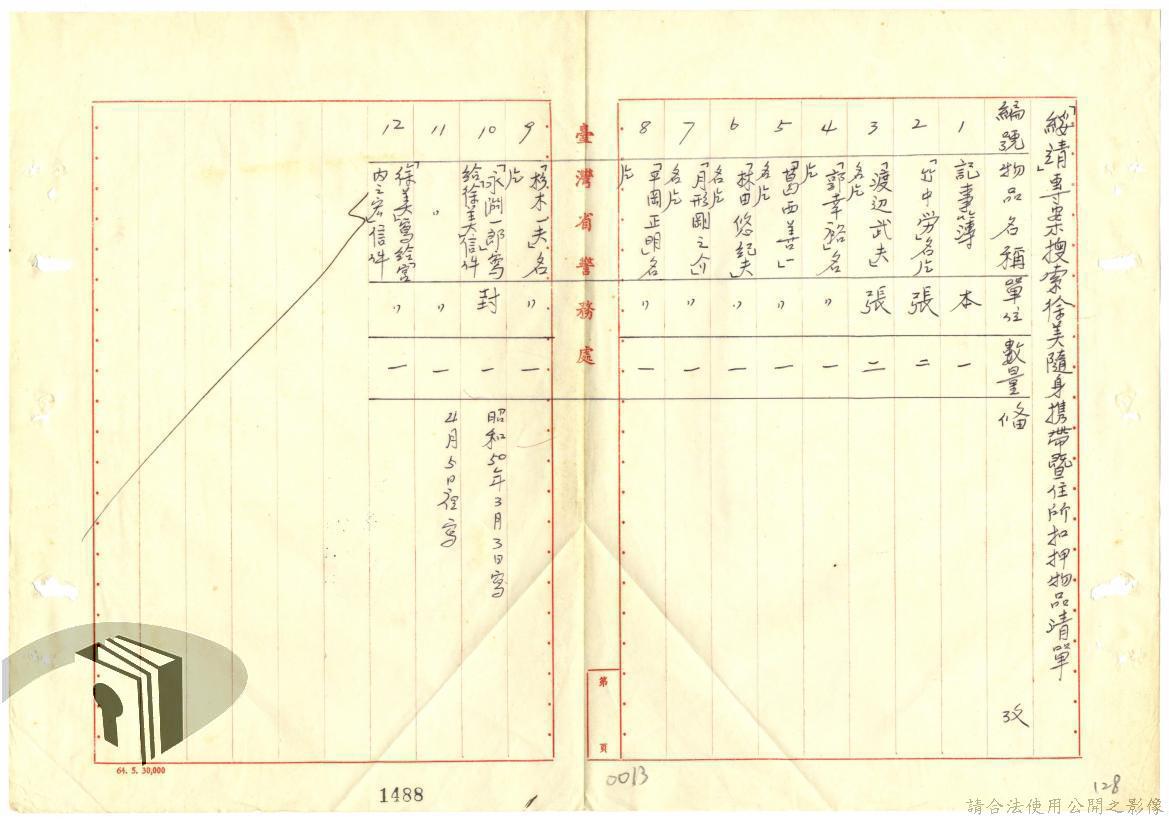 「綏靖」專案搜索徐美隨身携帶暨住所扣押物品清單
編號 物品名稱 單位 數量 備 攷
1 記事簿 本 一
2 「竹中労」名片 張 二
3 「渡辺武夫」名片 張 二
4 「郭幸裕」名片 〃 一
5 「葛西善一」名片 〃 一
6 「林田悠紀夫」名片 〃 一
7 「月形剛之介」名片 〃 一
8 「平岡正明」名片 〃 一
臺灣省警務處
第 頁
9 「 木一夫」名片 〃 一
10 「永渕一郎」寫給徐美信件 封 一 昭和50年3月3日寫
11 〃 〃 一 4月5日 寫
12 「徐美」寫給「宮内之宏」信件 〃 一
64. 5. 30,000
1488
0013
128
請合法使用公開之影像